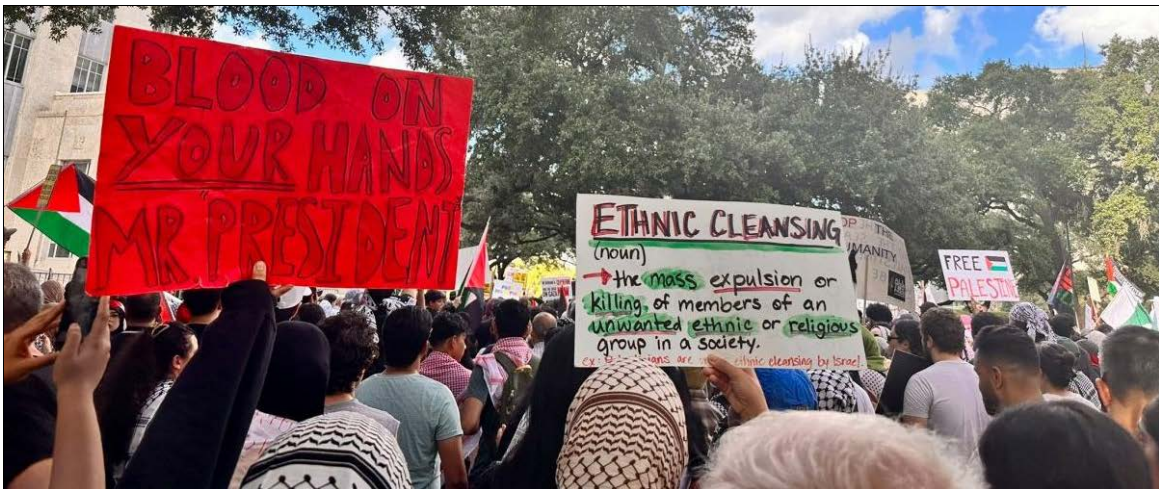 BLOOD ON
YOUR HANDS
MR "PRESIDENT"
ETHNIC CLEANSING
(noun)
→ the mass expulsion or
killing of members of an
unwanted ethnic or religious
group in a society.
are ethnic cleansing by Israel
THE
FREE
PALESTINE